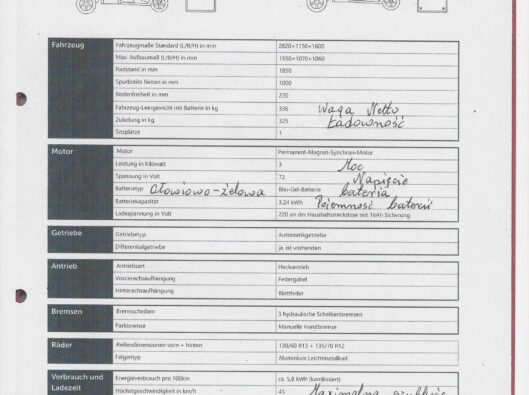 Fahrzeug
Fahrzeugmaße Standard (L/B/H) in mm 2820×1150×1600
Max. Aufbaumaß (L/B/H) in mm 1550×1070×1060
Radstand in mm 1850
Spurbreite hinten in mm 1000
Bodenfreiheit in mm 220
Fahrzeug-Leergewicht mit Batterie in kg 336 Waga Netto
Zuladung in kg 325 Ładowność
Sitzplätze 1
Motor Motor Permanent-Magnet-Synchron-Motor
Leistung in Kilowatt 3 Moc
Spannung in Volt 72 Napięcie
Batterietyp Ołowiowo-żelowa Blei-Gel-Batterie bateria
Batteriekapazität 3,24 kWh Pojemność baterii
Ladespannung in Volt 220 an der Haushaltssteckdose mit 16Ah Sicherung
Getriebe Getriebetyp Automatikgetriebe
Differentialgetriebe ja, ist vorhanden
Antrieb Antriebsart Heckantrieb
Vorderachsaufhängung Federgabel
Hinterachsaufhängung Blattfeder
Bremsen Bremsscheiben 3 hydraulische Scheibenbremsen
Parkbremse Manuelle Handbremse
Räder Reifendimensionen vorn + hinten 130/60 R13 + 135/70 R12
Felgentyp Aluminium Leichtmetallrad
Verbrauch und Energieverbrauch pro 100km ca. 5,8 kWh (kombiniert)
Ladezeit Höchstgeschwindigkeit in km/h 45 Maxymalna